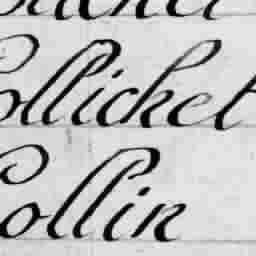 Collicket
Collin